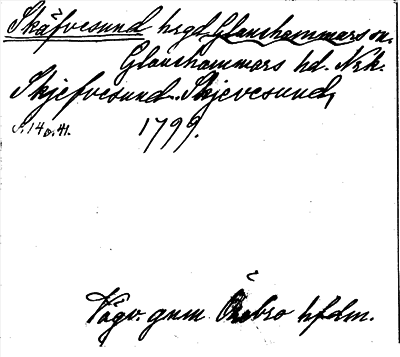 Skäfvesund hrgd. Glanshammars sn.
Glanshammars hd. Nrk.
Skjefvesund. Skjevesund,
s. 14 o. 41. 1799.
Vägv. gnm Örebro hfdm.